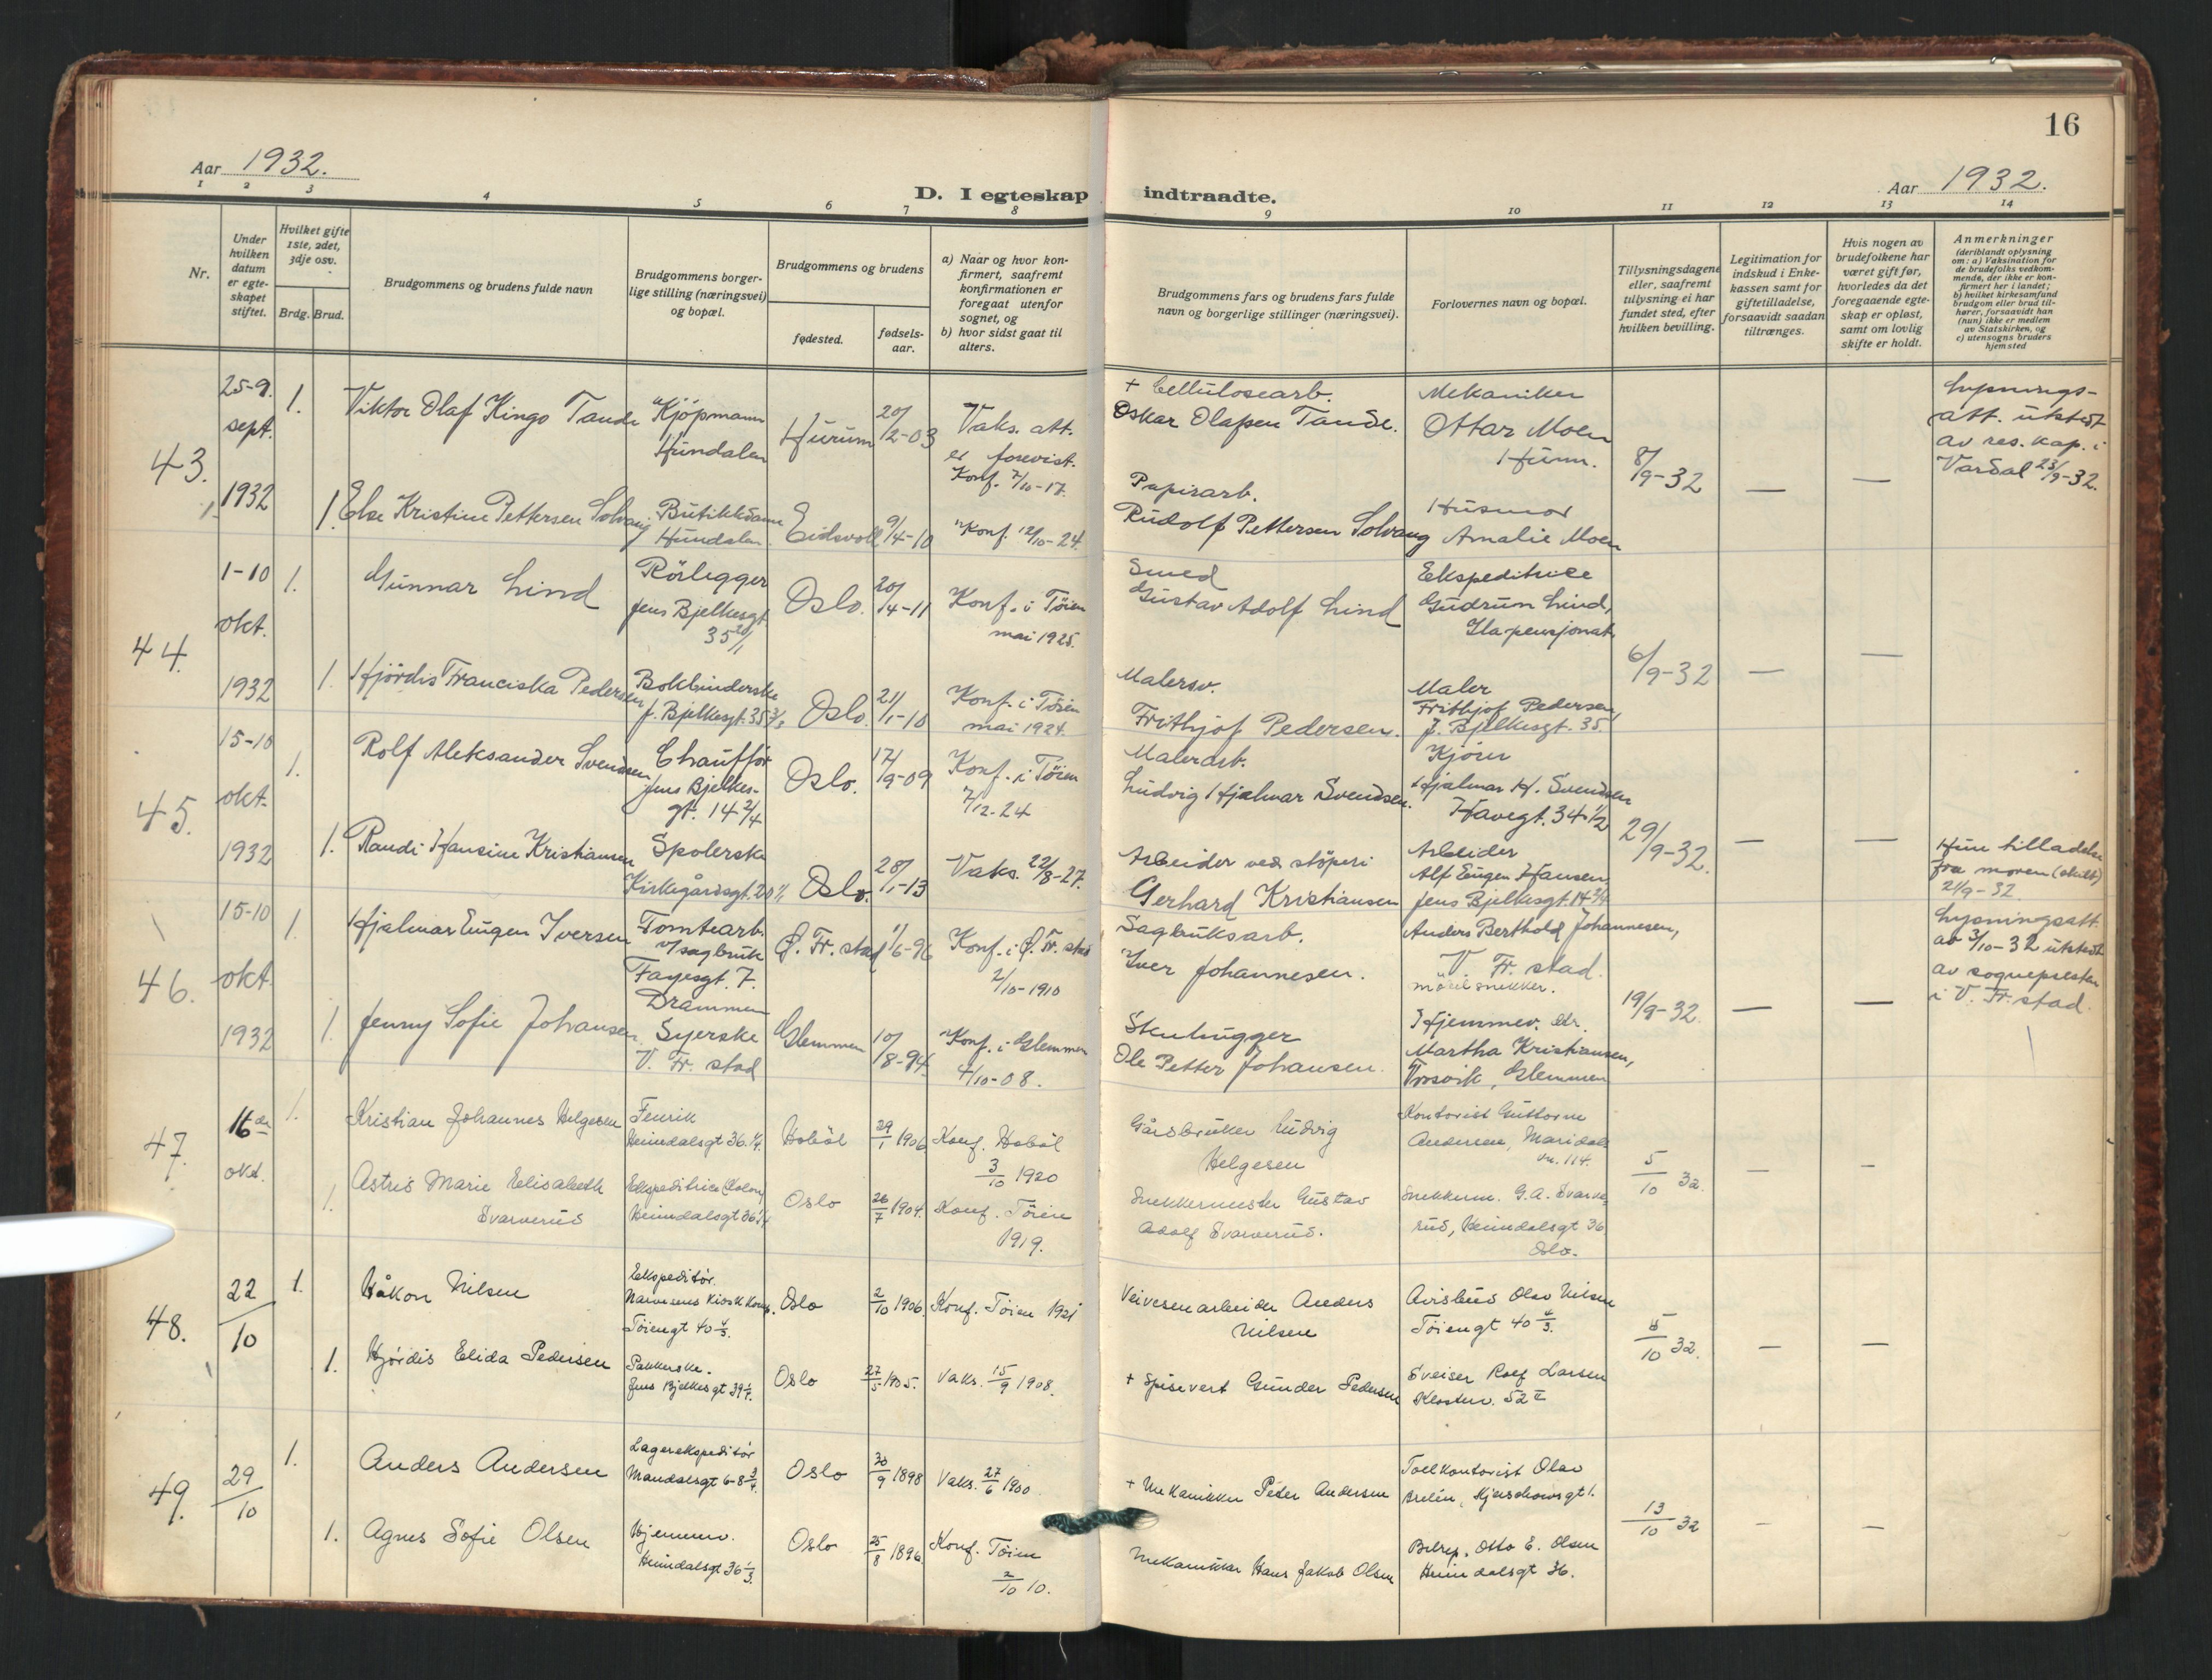 16
Aar 1932.
Aar 1932.
D. I egteskap indtraadte.
1 2 3 4 5 6 7 8 9 10 11 12 13 14
Nr.
Under hvilken datum er egteskapet stiftet.
Hvilket gifte 1ste, 2det, 3dje osv.
Brdg. Brud.
Brudgommens og brudens fulde navn
Brudgommens borgerlige stilling (næringsvei) og bopæl.
Brudgommens og brudens
fødested.
fødselsaar.
a) Naar og hvor konfirmert, saafremt konfirmationen er foregaat utenfor sognet, og
b) hvor sidst gaat til alters.
Brudgommens fars og brudens fars fulde navn og borgerlige stillinger (næringsvei).
Forlovernes navn og bopæl.
Tillysningsdagene eller, saafremt tillysning ei har fundet sted, efter hvilken bevilling.
Legitimation for indskud i Enkekassen samt for giftetilladelse, forsaavidt saadan tiltrænges.
Hvis nogen av brudefolkene har været gift før, hvorledes da det foregaaende egteskap er opløst, samt om lovlig skifte er holdt.
Anmerkninger
(deriblandt oplysning om: a) Vaksination for de brudefolks vedkommende, der ikke er konfirmert her i landet;
b) hvilket kirkesamfund brudgom eller brud tilhører, forsaavidt han (hun) ikke er medlem av Statskirken, og
c) utensogns bruders hjemsted
43.
25-9.
sept.
1932
1. Viktor Olaf Kingo Tande
Kjøpmann
Hundalen
Hurum
20/2-03
Vaks. att.
er forevist.
Konf. 7/10-17.
+ Cellulosearb.
Oskar Olafsen Tande.
Mekaniker
Ottar Moen
Hunn.
8/9-32
—
—
Lysnings-
att. utstedt
av res. kap. i
Vardal 23/9-32.
1. Else Kristine Pettersen Solvang
Butikkdame
Hundalen.
Eidsvoll
9/4-10
Konf. 12/10-24.
Papirarb.
Rudolf Pettersen Solvang
Husmor
Amalie Moen
44.
1-10
okt.
1932
1. Gunnar Lind
Rörlegger
Jens Bjelkesgt.
Oslo.
20/4-11
Konf. i Tøien
mai 1925.
Smed
Gustav Adolf Lind
Ekspeditrice
Gudrun Lind,
Ila pensjonat
6/9-32
—
—
1. Hjördis Franciska Pedersen
Bokbinderske
J. Bjelkesgt. 35
Oslo.
21/1-10
Konf. i Tøien
mai 1924.
Malersv.
Frithjof Pedersen.
Maler
Frithjof Pedersen,
J. Bjelkesgt. 35.
45.
15-10
okt.
1932
1. Rolf Aleksander Svendsen
Chaufför
Jens Bjelkes-
gt. 14 2/4
Oslo.
17/9-09
Konf. i Tøien
7/12-24
Malerarb.
Ludvig Hjalmar Svendsen.
Kjører
Hjalmar H. Svendsen
Havegt. 34 1/2
29/9-32.
—
—
1. Randi Hansine Kristiansen
Spolerske
Kirkegårdsgt. 20
Oslo.
28/1-13
Vaks. 22/8-27.
Arbeider ved støperi
Gerhard Kristiansen
Arbeider
Alf Eugen Hansen
Jens Bjelkesgt. 14 2/4
Hun tilladelse
fra moren (skilt)
21/9-32
46.
15-10
okt.
1932
1. Hjalmar Eugen Iversen
Tomtearb.
v/ sagbruk
Fayesgt. 7.
Drammen
Ø. Fr. stad
1/6-96
Konf. i Ø. Fr. stad
2/10-1910
Sagbruksarb.
Iver Johannesen.
Anders Berthold Johannesen,
V. Fr. stad.
möbelsnekker.
19/9-32.
—
—
Lysningsatt.
av 3/10-32 utstedt
av sognepresten
i V. Fr. stad.
1. Jenny Sofie Johansen.
Syerske
V. Fr. stad
Glemmen
10/8-94.
Konf. i Glemmen
4/10-08.
Stenhugger
Ole Petter Johansen.
Hjemmev. str.
Martha Kristiansen,
Trosvik, Glemmen
47.
16de
okt.
1. Kristian Johannes Helgesen
Fenrik
Heimdalsgt 36. 1/4.
Hobøl
29/1 1906
Konf. Hobøl
3/10 1920
Gårdbruker Ludvig
Helgesen
Kontorist Guttorm
Andersen, Maridals
vn. 114.
5/10 32.
—
—
1. Astrid Marie Elisabeth
Svarverud
Ekspeditrice (Kolon)
Heimdalsgt 36 1/4
Oslo
26/7 1904.
Konf. Tøien
1919.
Snekkermester Gustav
Adolf Svarverud.
Snekkerm. G.A. Svarve-
rud, Heimdalsgt 36
Oslo.
48.
22/10
1. Håkon Nilsen
Ekspeditør.
Narvesens Kiosk komp.
Tøiengt 40 4/3.
Oslo
2/10 1906.
Konf. Tøien 1921
Veivesenarbeider Anders
Nilsen
Avisbud Olav Nilsen
Tøiengt 40 4/3.
5/10 32.
—
—
1. Hjördis Elida Pedersen
Pakkerske.
Jens Bjelkesgt 39 1/4.
Oslo
27/5 1905.
Vaks. 15/9 1908.
+ Spisevert Gunder Pedersen
Sveiser Rolf Larsen
Klosterv. 52 II
49.
29/10
1. Anders Andersen
Lagerekspeditör
Mandalsgt 6-8 3/4.
Oslo
30/9 1898
Vaks. 27/6 1900.
+ Mekaniker Peder Andersen
Tollkontorist Olav
Brelin, Hjerschowsgt 1.
13/10 32
—
—
1. Agnes Sofie Olsen
Hjemmev.
Heimdalsgt 36 1/3.
Oslo
25/8 1896
Konf. Tøien
2/10 10.
Mekaniker Hans Jakob Olsen
Bilrep. Otto E. Olsen
Heimdalsgt 36.